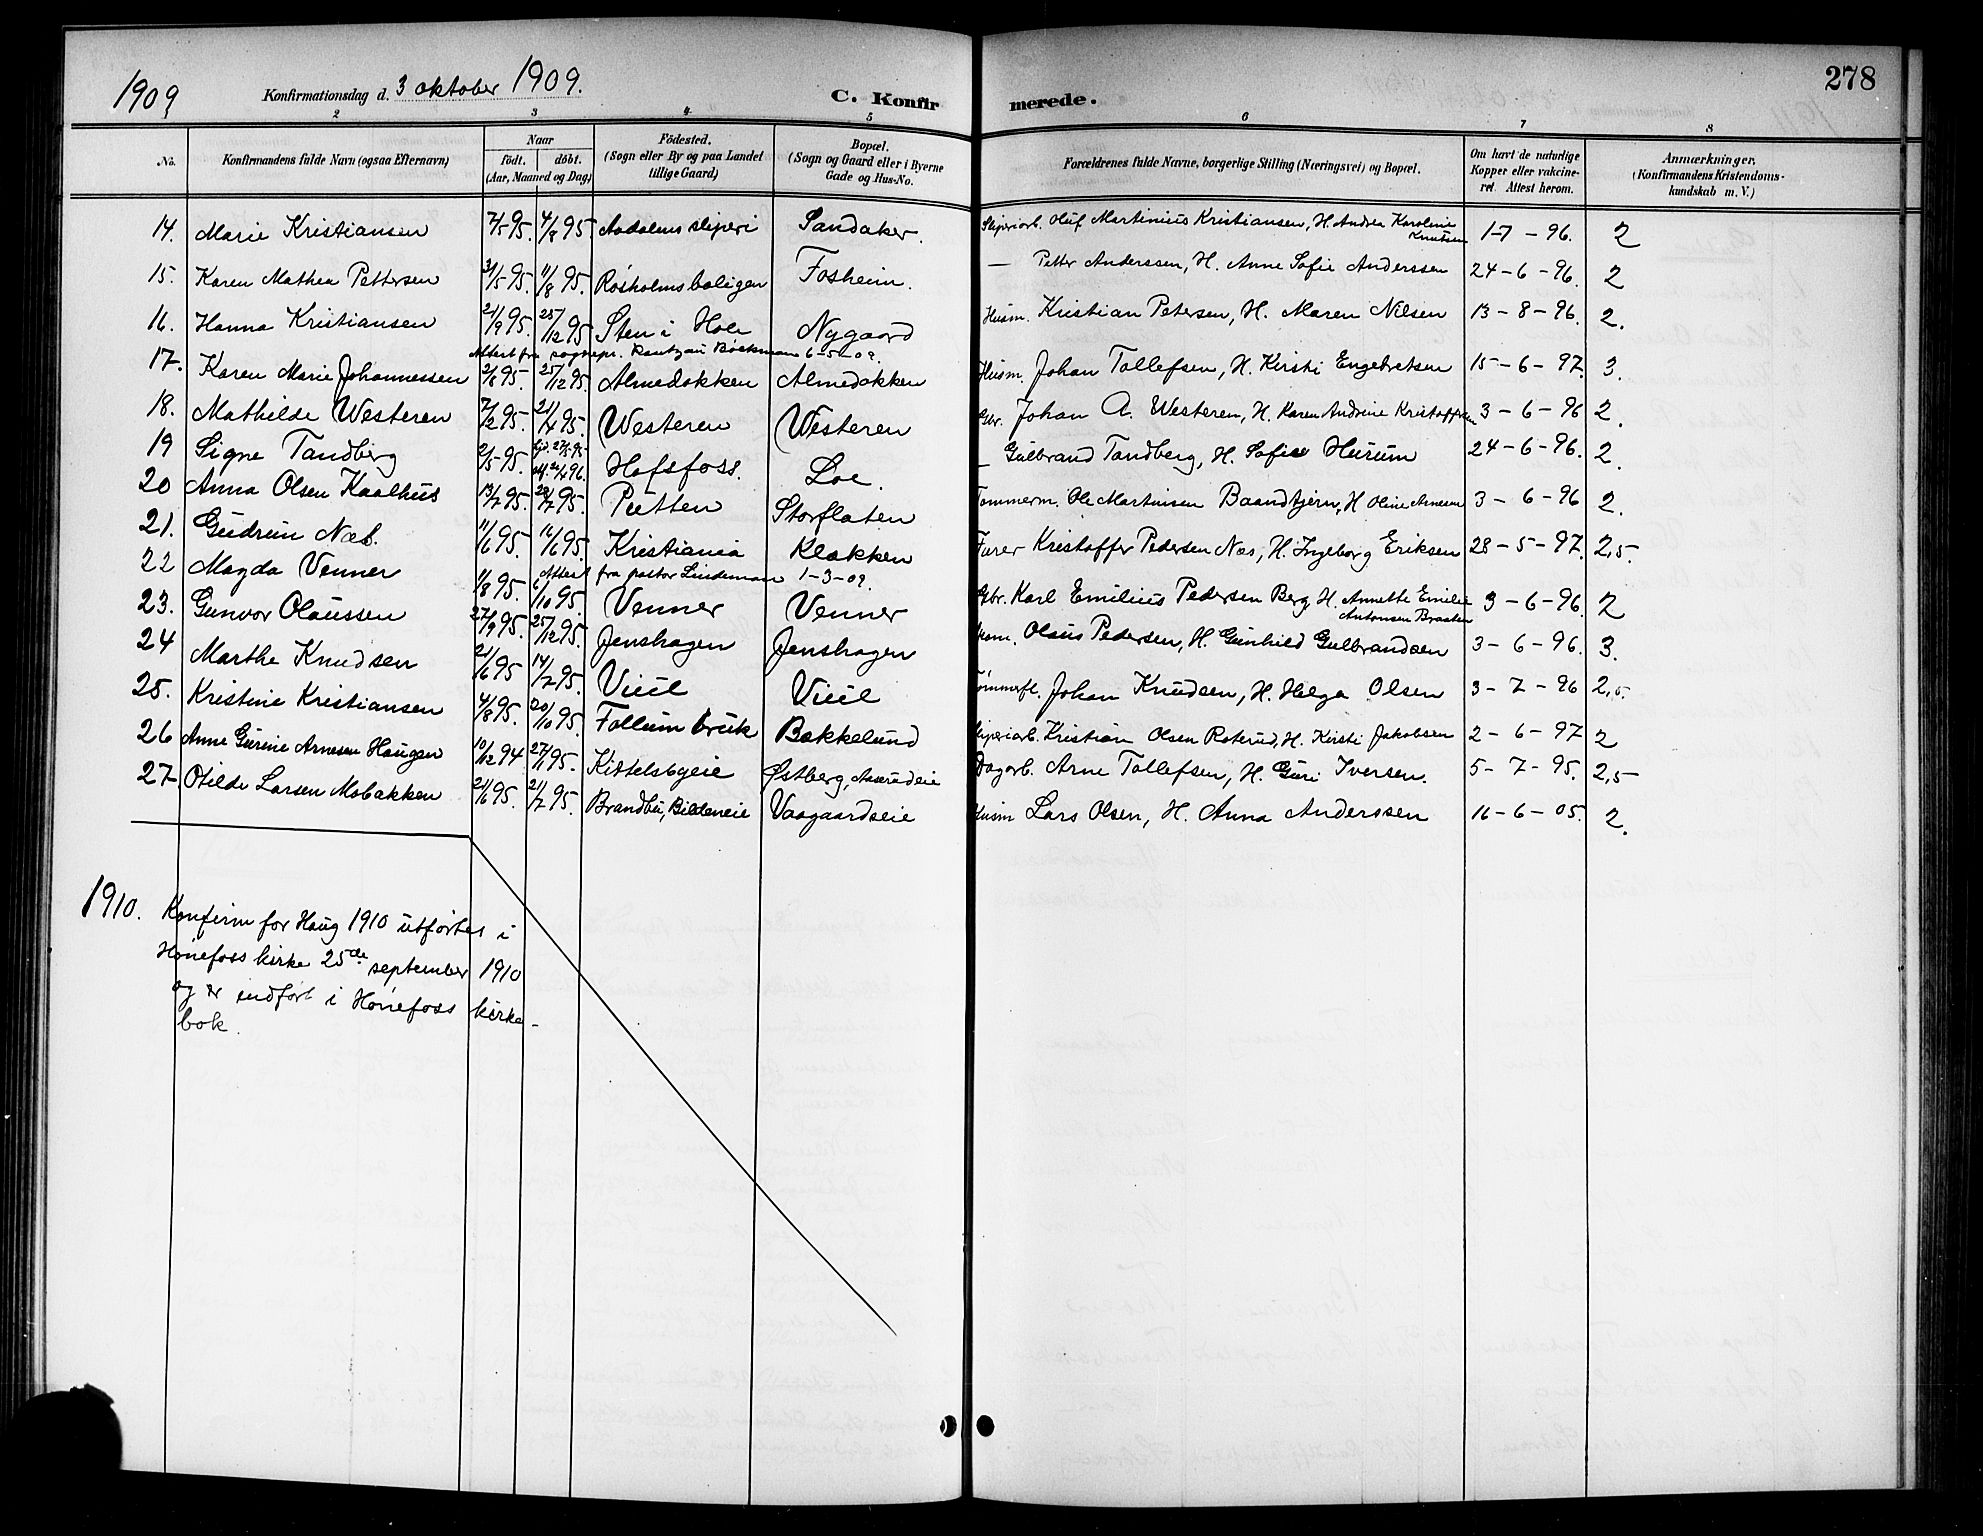 278
1909 Konfirmationsdag d. 3 oktober 1909. C. Konfirmerede.
2 3 4 5 6 7 8
No. Konfirmandens fulde Navn (ogsaa Efternavn) Naar født. døbt. (Aar, Maaned og Dag) Födested. (Sogn eller By og paa Landet tillige Gaard) Bopæl. (Sogn og Gaard eller i Byerne Gade og Hus-No. Forældrenes fulde Navne, borgerlige Stilling (Næringsvei) og Bopæl. Om havt de naturlige Kopper eller vakcineret. Attest herom. Anmærkninger, (Konfirmandens Kristendomskundskab m. V.)
14. Marie Kristiansen 7/5 95. 4/8 95 Aadalens sliperi Sandaker. Sliperiarb. Oluf Martinius Kristiansen, H. Andrea Karoline Knutsen 1-7-96. 2
15. Karen Mathea Pettersen 31/5 95. 11/8 95. Røsholmsboligen Fosheim. — Petter Anderssen, H. Anne Sofie Anderssen 24-6-96. 2
16. Hanna Kristiansen 21/9 95. 25/12 95 Sten i Hole Nygaard Husm. Kristian Petersen, H. Maren Nilsen 13-8-96. 2.
Attest fra sognepr. Rantzau Bøckman 6-5-09.
17. Karen Marie Johannessen 2/8 95. 25/12 95. Almedokken Almedokken Husm. Johan Tollefsen, H. Kirsti Engebretsen 15-6-97. 3.
18. Mathilde Westeren 7/2 95. 21/4 95. Westeren Westeren Gbr. Johan A. Westeren, H. Karen Andrine Kristoffersen 3-6-96 2.
19 Signe Tandberg 2/5 95. hjd. 27/5 95 off. 26/4 96. Hofsfoss. Loe. — Gulbrand Tandberg, H. Sofie Hurum 24-6-96. 2.
20 Anna Olsen Kaalhus 13/2 95. 28/7 95. Putten Storflaten Tømmerm. Ole Martinsen Baandtjern, H Oline Arnesen 3-6-96 2.
21. Gudrun Næs. 11/6 95. 16/6 95. Kristiania Klækken Furer Kristoffer Pedersen Næs, H. Ingeborg Eriksen 28-5-97. 2,5.
Attest fra pastor Lindeman 1-3-09.
22 Magda Venner 11/8 95. 6/10 95. Venner Venner Gbr. Karl Emilius Pedersen Berg H. Annette Emilie Antonsen Braaten 3-6-96. 2
23. Gunvor Olaussen 27/9 95. 25/12 95. Jenshagen Jenshagen Husm. Olaus Pedersen, H. Gunhild Gulbrandsen 3-6-96. 3.
24 Marthe Knudsen 21/6 95 14/7 95. Viul Viul Tømmerfl. Johan Knudsen, H. Helga Olsen 3-7-96 2,5.
25. Kristine Kristiansen 4/8 95. 20/10 95. Follum bruk Bakkelund Sliperiarb. Kristian Olsen Roterud, H. Kirsti Jakobsen 2-6-97 2
26 Anne Gurine Arnesen Haugen 10/12 94 27/1 95. Kittelsbyeie Østberg, Aaserudeie Dagarb. Arne Tollefsen, H. Guri Iversen. 5-7-95. 2,5
27. Otilde Larsen Mobakken 21/6 95. 21/7 95. Brandbu, Bildeneie Vaagaardseie Husm Lars Olsen, H. Anna Anderssen 16-6-05. 2.
1910. Konfirm for Haug 1910 utførtes i
Hønefoss kirke 25de september 1910
og er indført i Hønefoss kirke-
bok.